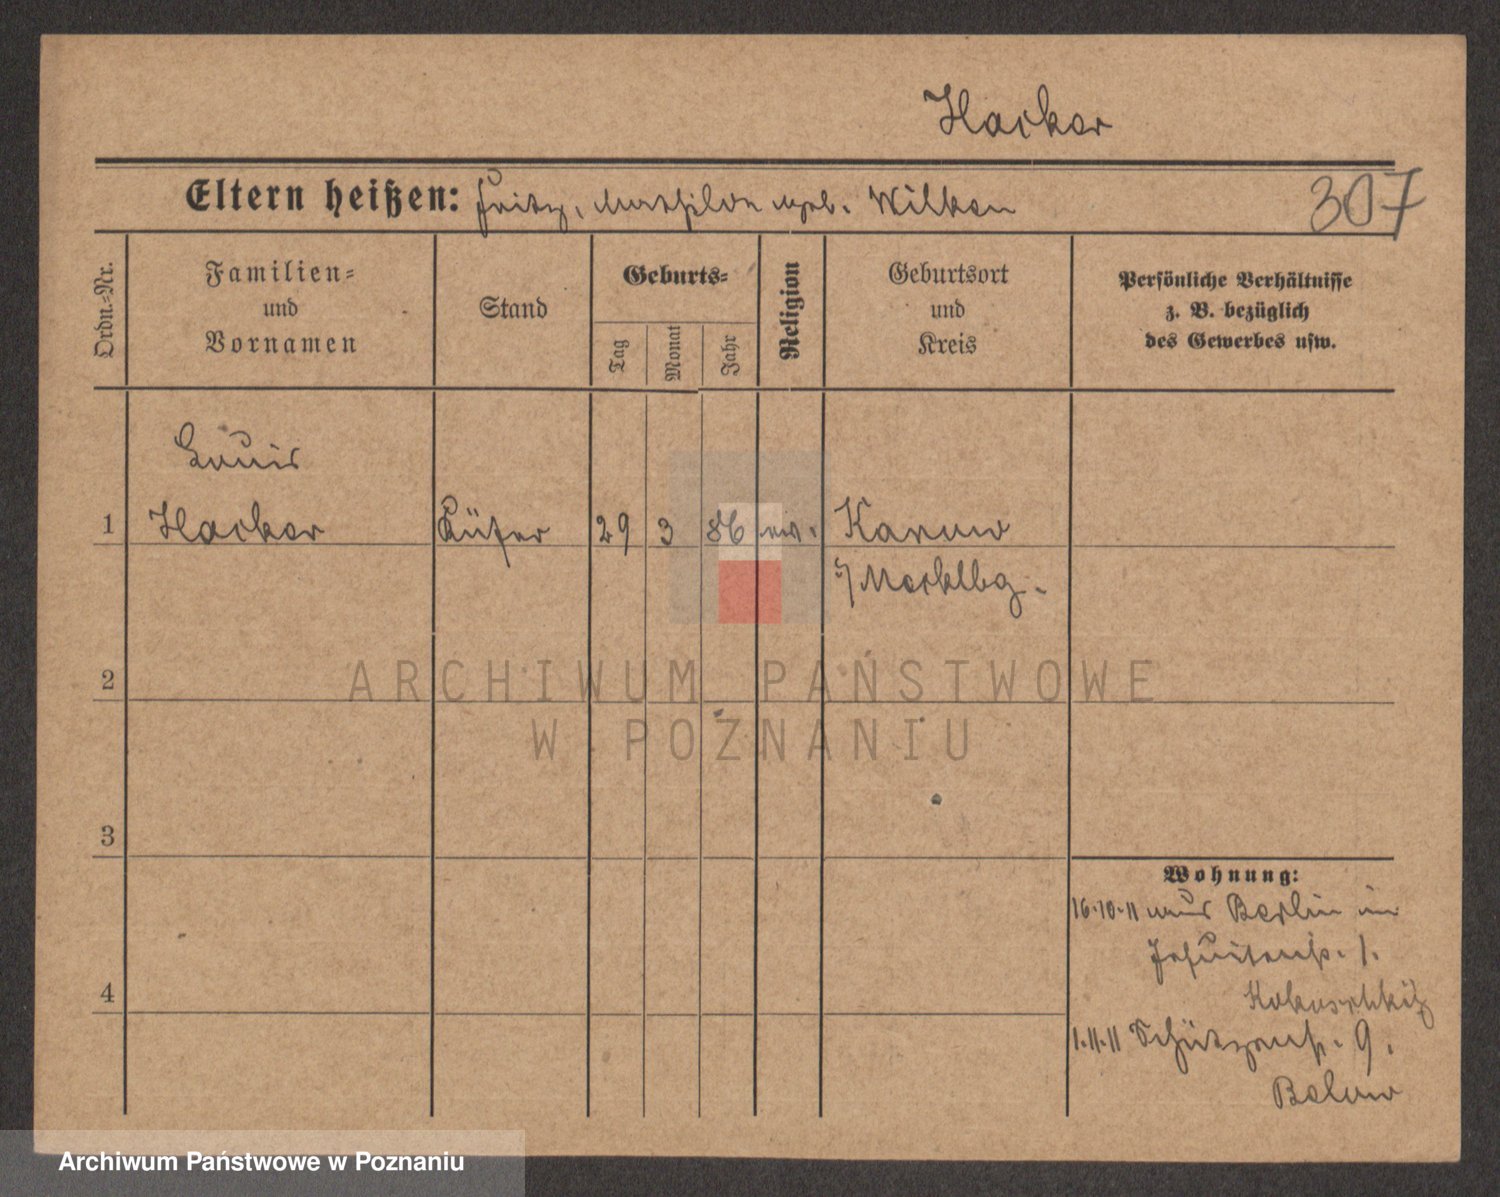 Hacker
Eltern heißen: Fritz, Mathilde geb. Wilken
307
Ordn.=Nr.
Familien=
und
Vornamen
Stand
Geburts=
Tag
Monat
Jahr
Religion
Geburtsort
und
Kreis
Persönliche Verhältnisse
z. B. bezüglich
des Gewerbes usw.
Louis
1 Hacker Küfer 29 3 86 ev. Karow
i/Mecklbg.
2
ARCHIWUM PAŃSTWOWE
W POZNANIU
3
Wohnung:
16.10.11 aus Berlin in
Jesuitenstr. 1.
4
1.11.11 Schützenstr. 9.
Below
Archiwum Państwowe w Poznaniu